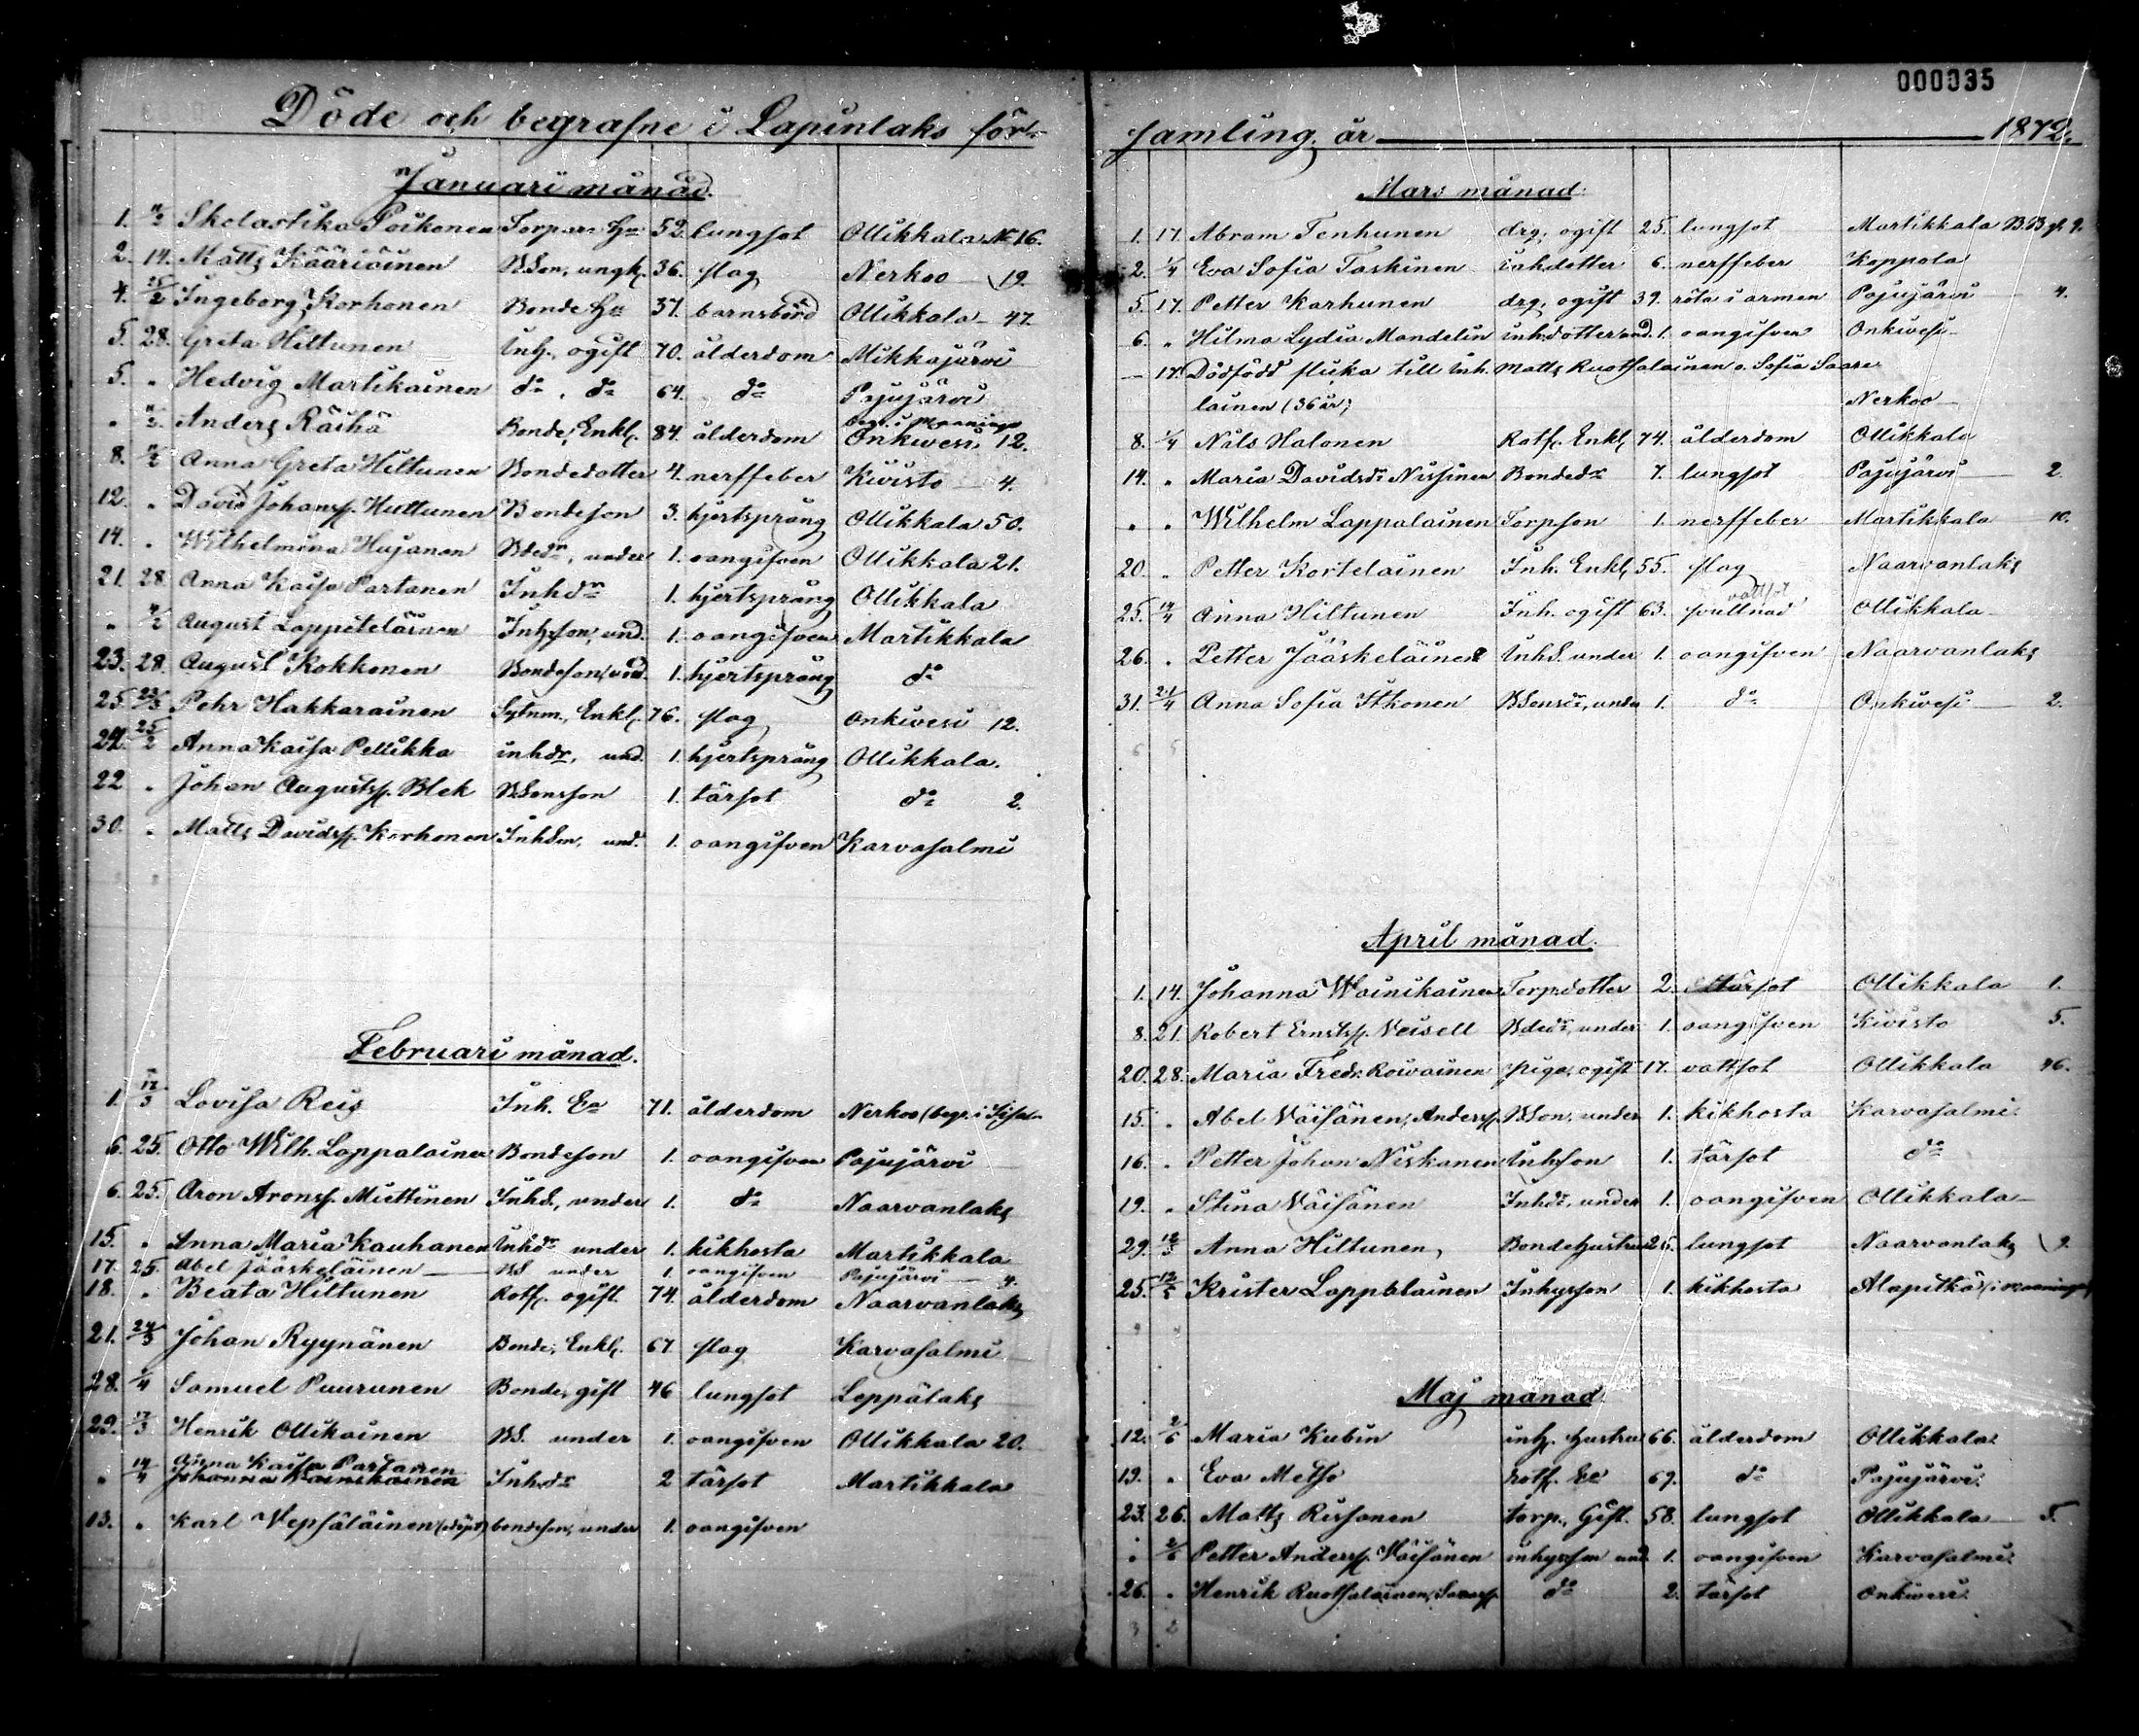 000035
Döde och begrafne i Lapinlaks för-
samling, år 1872.
Januari månad.
1. 11/2 Skolastika Poikonen Torpare Hu 52. lungsot Ollikkala № 16.
2. 14. Matts Kääriäinen BSon, ungk. 36. slag Nerkoo 19.
4. 25/2 Ingeborg Korhonen Bonde Hu 37. barnsbörd Ollikkala 47.
5. 28. Greta Hiltunen Inh. ogift 70. ålderdom Mikkajärvi
5. " Hedvig Martikainen do, do 64. do Pajujärvi
" 11/2. Anders Räihä Bonde, Enkl. 84. ålderdom Onkivesi 12.
8. 11/2 Anna Greta Hiltunen Bondedotter 4. nerffeber Kivistö 4.
12. " David Johanss. Huttunen Bondeson 3. hjertsprång Ollikkala 50.
14. " Wilhelmina Hujanen Bdedr, under 1. oangifven Ollikkala 21.
21. 28. Anna Kaisa Partanen Inhdr 1. hjertsprång Ollikkala
" 4/2 August Lappiteläinen Inhson, und. 1. oangifven Martikkala
23. 28. August Kokkonen Bondeson, und. 1. hjertsprång do
25. Pehr Hakkarainen Sytnm., Enkl. 76. slag Onkivesi 12.
24. 25/2 Anna Kaisa Pellikka inhdr, und. 1. hjertsprång Ollikkala.
22 " Johan Augustss. Blek BSonson 1. tärsot do 2.
30. " Matts Davidss. Korhonen InhSon, und. 1. oangifven Karvasalmi
Februari månad.
1. 17/3 Lovisa Reis Inh. Ea 71. ålderdom Nerkoo (begr. i
6. 25. Otto Wilh. Lappalainen Bondeson 1. oangifven Pajujärvi
6. 25. Aron Aronss. Miettinen InhS., under 1. do Naarvanlaks
15. " Anna Maria Kauhanen Inhdr under 1. kikhosta Martikkala
17. 25. Abel Jääskeläinen BS under 1. oangifven Pajujärvi 4.
18. " Beata Hiltunen Rotf. ogift 74. ålderdom Naarvanlaks
21. 24/3 Johan Ryynänen Bonde, Enkl. 67. slag Karvasalmi
28. 1/4 Samuel Puurunen Bonde, gift 46 lungsot Leppälaks
29. 17/3 Henrik Ollikainen BS. under 1. oangifven Ollikkala 20.
Anna Kaisa Partanen
" 14/4 Johanna Wainikainen Inhdr 2 tärsot Martikkala
13. " Karl Wepsäläinen (döpt) bondeson, under 1. oangifven
Mars månad.
1. 17. Abram Tenhunen drg, ogift 25. lungsot Martikkala
2. 1/4 Eva Sofia Taskinen inhdotter 6. nerffeber Koppola
5. 17. Petter Karhunen drg, ogift 39. röta i armen Pajujärvi 4.
6. " Hilma Lydia Mandelin inhdotter und. 1. oangifven Onkivesi
— 17. Dödfödd flicka till Inh. Matts Ruotsalainen o. Sofia Saare-
lainen (36 år) Nerkoo
8. 1/4 Nils Halonen Rotf. Enkl. 74. ålderdom Ollikkala
14. " Maria Davidsdr Nissinen Bondedr 7. lungsot Pajujärvi 2.
" " Wilhelm Lappalainen Torpson 1. nerffeber Martikkala 10.
20. " Petter Kortelainen Inh. Enkl. 55. slag Naarvanlaks
vattsot
25. 14/4 Anna Hiltunen Inh. ogift 63. svullnad Ollikkala
26. " Petter Jääskeläinen InhS. under 1. oangifven Naarvanlaks
31. 21/4 Anna Sofia Itkonen BSonsdr, under 1. do Onkivesi 2.
April månad.
1. 14. Johanna Wainikainen Torpdotter 2. tärsot Ollikkala 1.
8. 21. Robert Ernstss. Veisell under 1. oangifven Kivistö 5.
20. 28. Maria Fredr. Roivainen piga, ogift 17. vattsot Ollikkala 46.
15. " Abel Väisänen, Anderss. BSon, under 1. kikhosta Karvasalmi
16. " Petter Johan Niskanen Inhson 1. tärsot do
19. " Stina Väisänen Inhdr, under 1. oangifven Ollikkala
29. 12/5 Anna Hiltunen Bondehustru 25. lungsot Naarvanlaks 9.
25. 12/5 Krister Lappalainen Inhysson 1. kikhosta Alapitkä
Maj månad.
12. 2/6 Maria Kubin inh. hustru 66. ålderdom Ollikkala
19. " Eva Metso rotf. Ea 69. do Pajujärvi
23. 26. Matts Rissanen torp., Gift. 58. lungsot Ollikkala 5.
" 2/6 Petter Anderss. Väisänen inhysson und. 1. oangifven Karvasalmi
26. " Henrik Ruotsalainen, do 2. tärsot Onkivesi